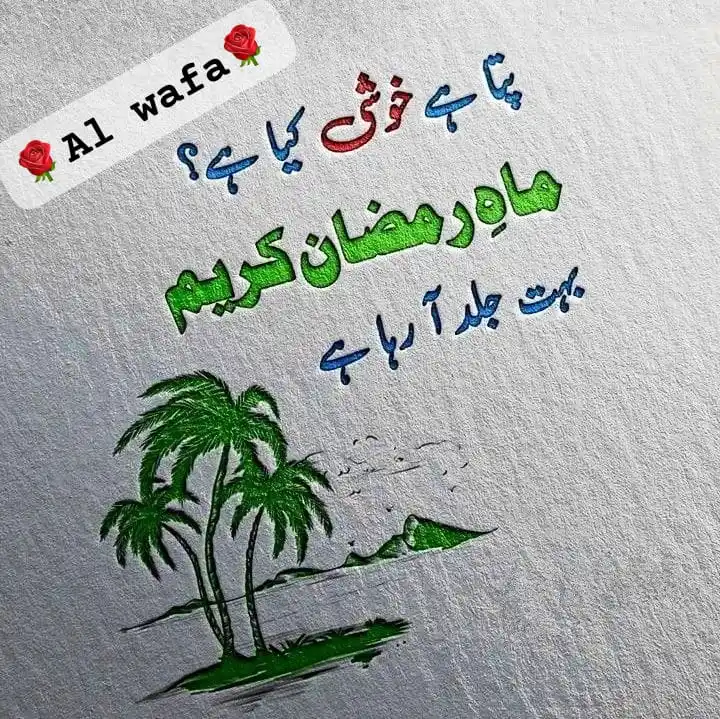 🌹Al wafa🌹
پتا ہے خوشی کیا ہے؟
ماہِ رمضان کریم
بہت جلد آ رہا ہے